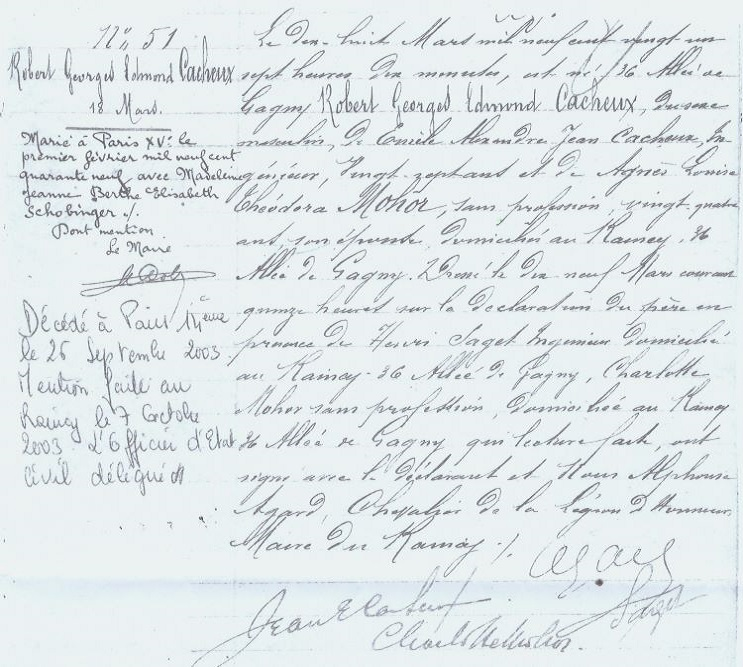 N° 51
Robert Georges Edmond Cacheux
18 Mars.
Marié à Paris XVe le
premier février mil neuf cent
quarante neuf avec Madeleine
Jeanne Berthe Elisabeth
Schobinger ./.
Dont mention
Le Maire
Décédé à Paris 14ième
le 26 Septembre 2003
Mention faite au
Raincy le 7 Octobre
2003. L'Officier d'Etat
Civil délégué
Le dix-huit Mars mil neuf cent vingt un
sept heures dix minutes, est né, 36 Allée de
Gagny Robert Georges Edmond Cacheux, du sexe
masculin, de Emile Alexandre Jean Cacheux, In
génieur, vingt sept ans et de Agnès Louise
Théodora Mohor, sans profession, vingt quatre
ans, son épouse, domiciliés au Raincy, 36
Allée de Gagny. Dressé le dix neuf Mars courant
quinze heures sur la déclaration du père en
présence de Henri Saget Ingénieur domicilié
au Raincy 36 Allée de Gagny, Charlotte
Mohor sans profession, domiciliée au Raincy
36 Allée de Gagny qui lecture faite, ont
signé avec le déclarant et Nous Alphonse
Agard, Chevalier de la Légion d'Honneur,
Maire du Raincy ./.
Agard
Saget
Jean E Cacheux
Charlotte Mohor